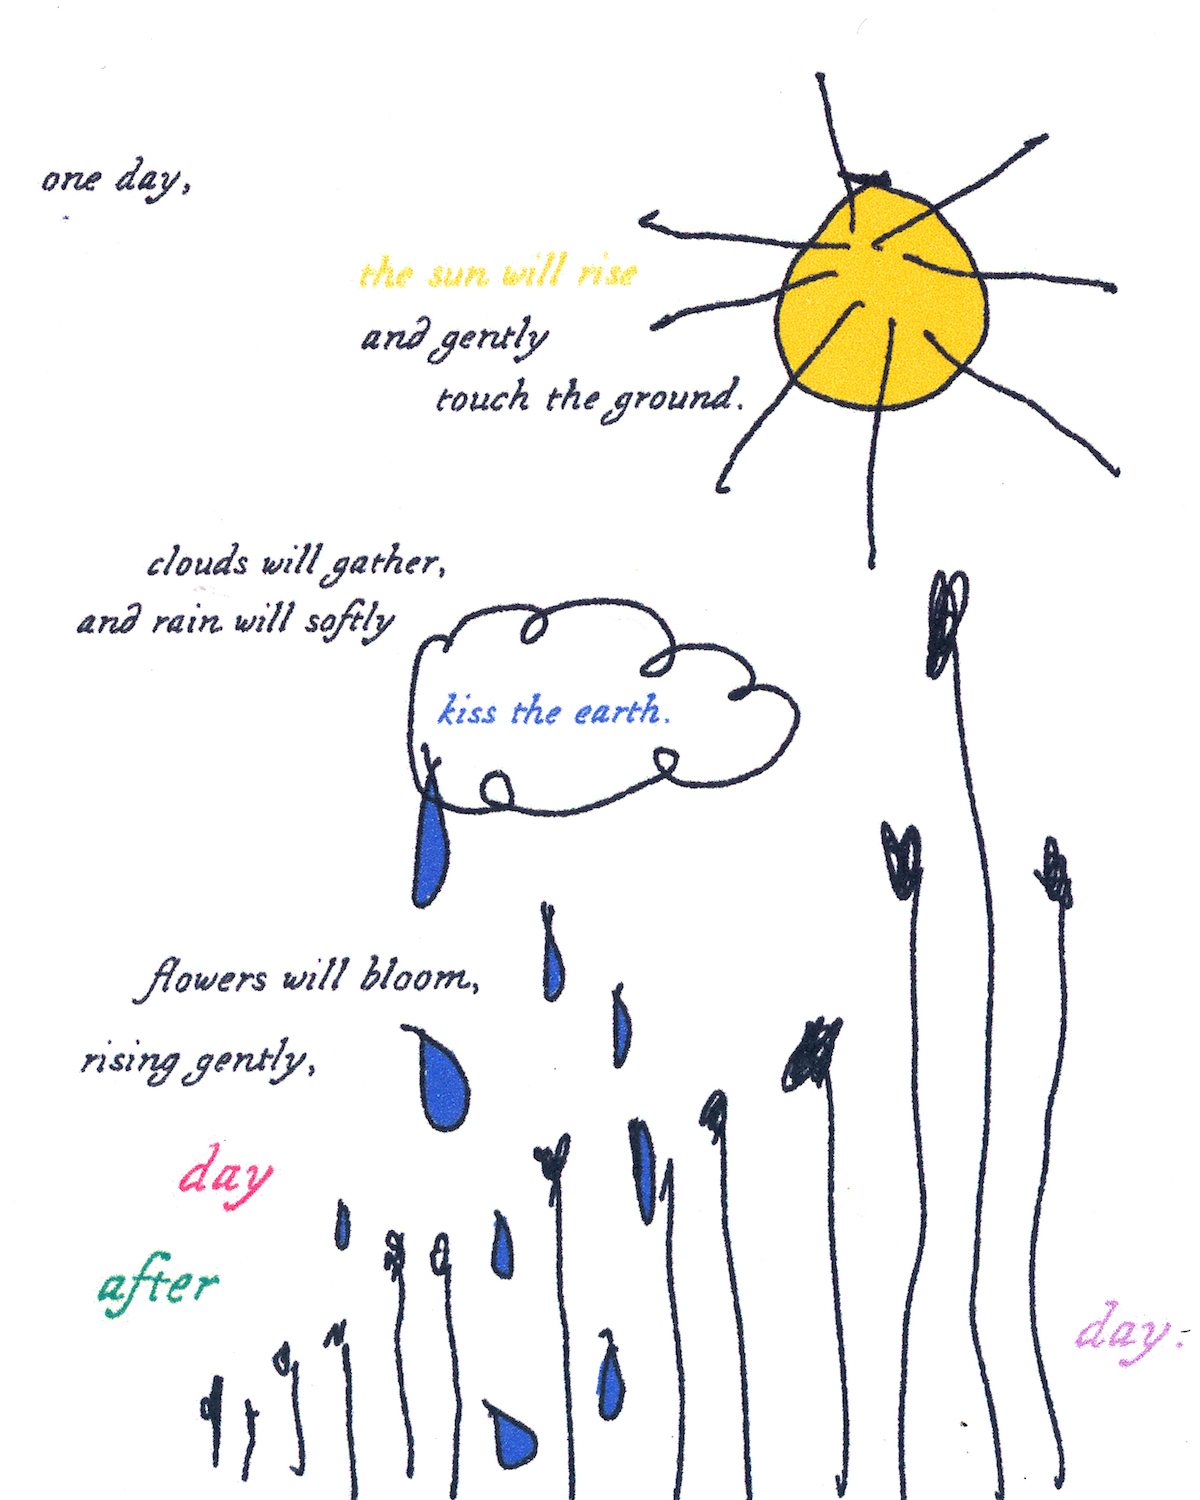 one day,
the sun will rise
and gently
touch the ground.
clouds will gather,
and rain will softly
kiss the earth.
flowers will bloom,
rising gently,
day
after
day.